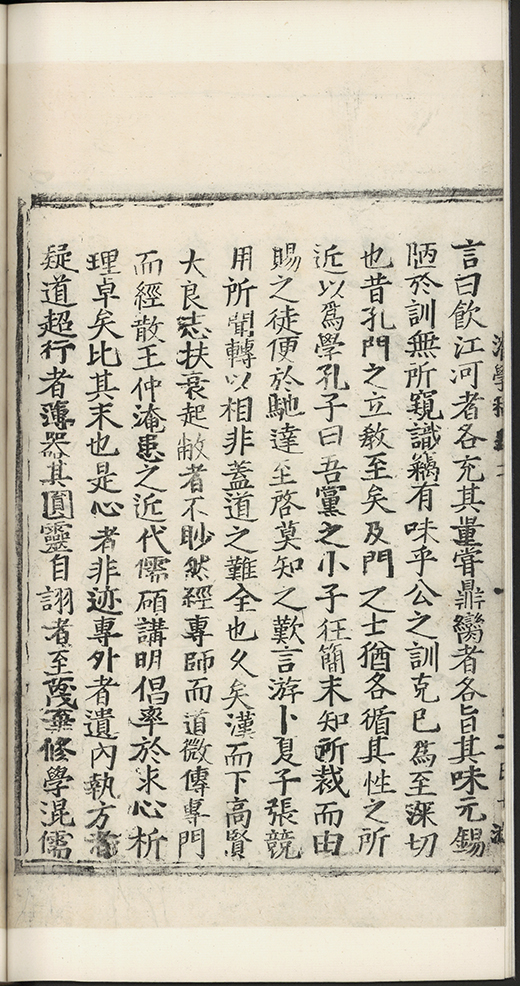 言曰飲江河者各充其量嘗鼎臠者各旨其味元錫
陋於訓無所窺識竊有味乎公之訓克已爲至深切
也昔孔門之立敎至矣及門之士猶各循其性之所
近以爲學孔子曰吾黨之小子狂簡未知所裁而由
賜之徒便於馳達至啓莫知之歎言游卜夏子張競
用所聞轉以相非蓋道之難全也久矣漢而下高賢
大良志扶衰起敝者不眇然經專師而道微傳專門
而經散王仲淹患之近代儒碩講明倡率於求心析
理卓矣比其末也是心者非迹專外者遺內執方者
疑道超行者薄器其圓靈自詡者至蔑棄修學混儒